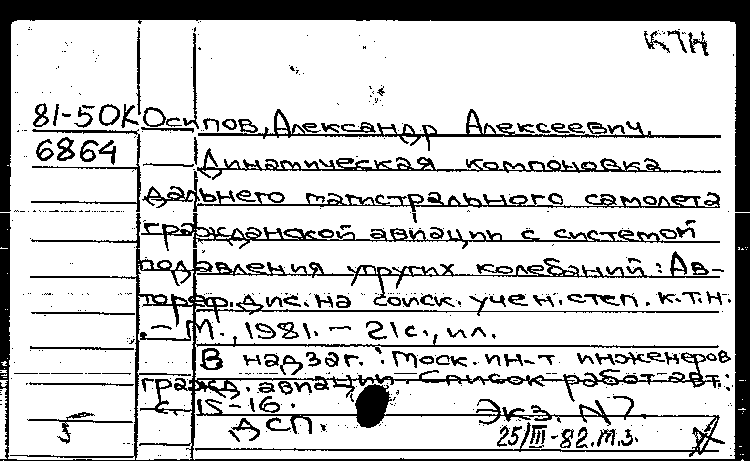 КТН
81-5ОК Осипов, Александр Алексеевич.
6864 Динамическая компоновка
дальнего магистрального самолета
гражданской авиации с системой
подавления упругих колебаний: Ав-
тореф. дис. на соиск. учен. степ. к.т.н.
. - М., 1981. - 21 с., ил.
В надзаг.: Моск. ин-т инженеров
гражд. авиации. Список работ авт.:
с. 15-16.
ДСП. Экз. N7.
25/III-82.т.з.